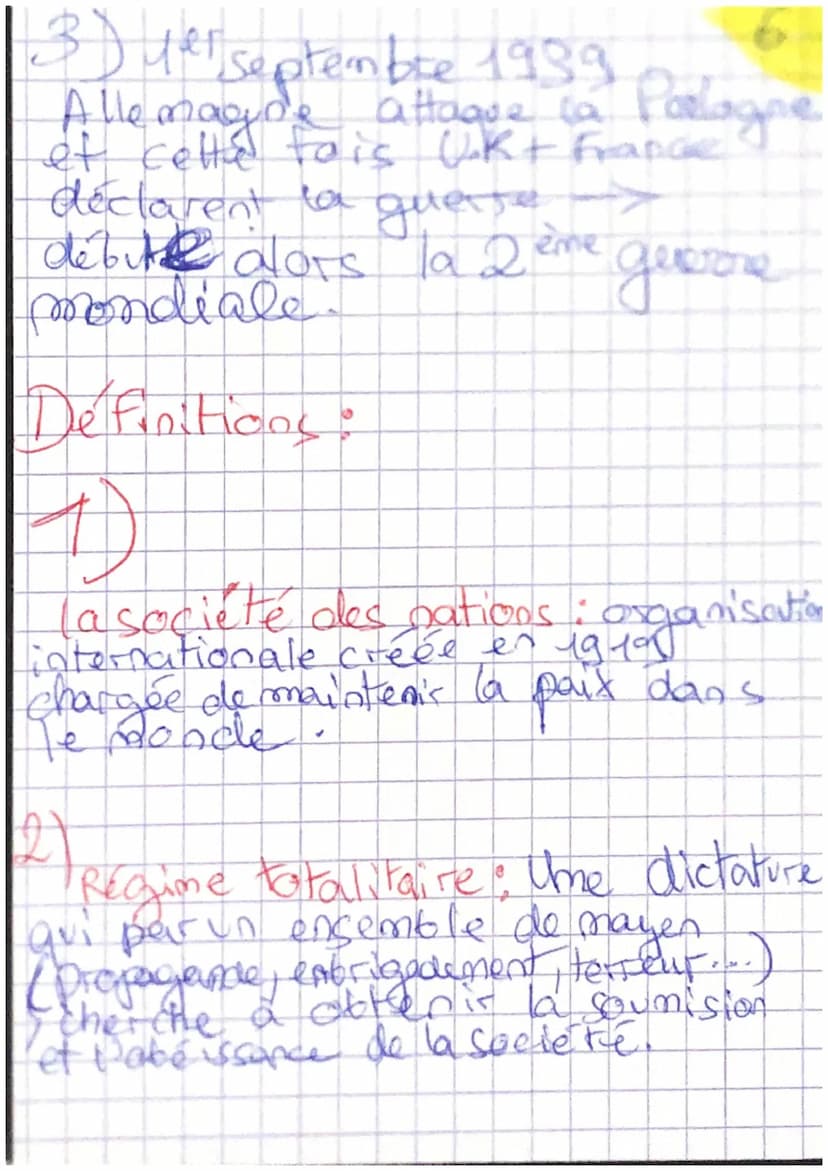 6
3) 1er septembre 1939
Allemagne attaque la Pologne
et cette fois U.K + France
déclarent la guerre →
débute alors la 2ème guerre
mondiale.
Définitions :
1)
la société des nations : organisation
internationale créée en 1919
chargée de maintenir la paix dans
le monde.
2)
Régime totalitaire : Une dictature
qui par un ensemble de moyen
(propagande, enbrigadement, terreur...)
, cherche à obtenir la soumision
et l'obéissance de la société.